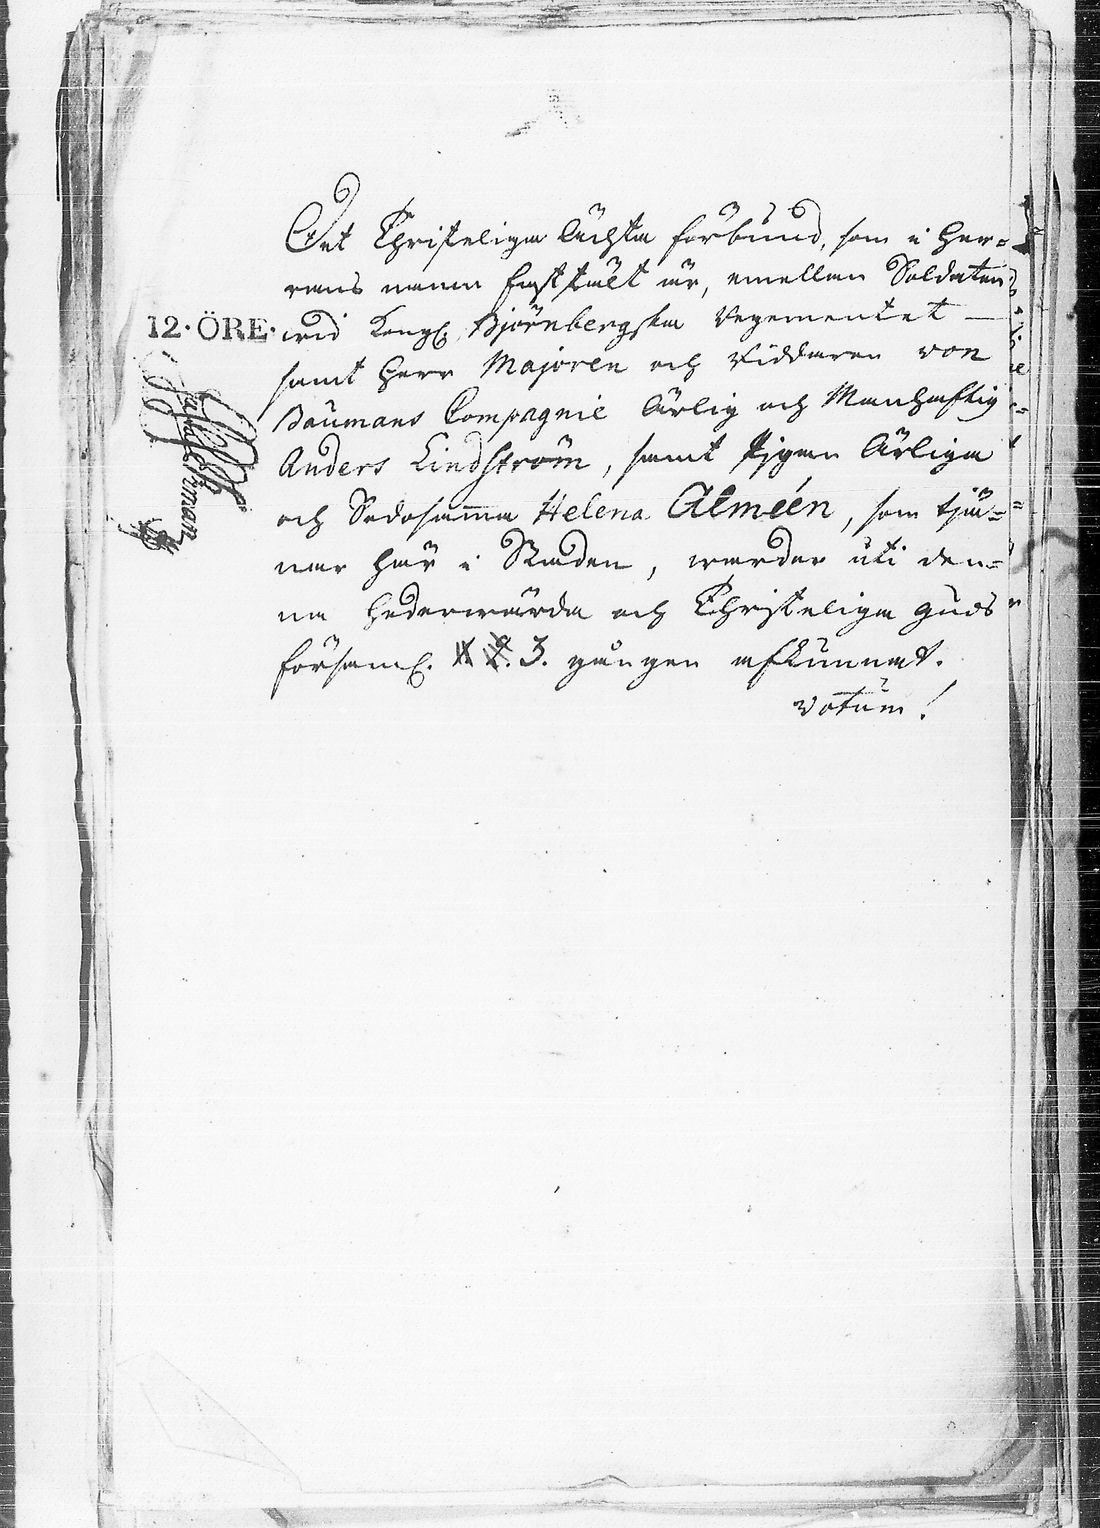 Det Christeliga Ächta förbund, som i Her=
rans namn fastsält är, emellan Soldaten
12·ÖRE·
wid Kongl. Björnbergska Regementet —
samt Herr Majoren och Riddaren von
Baumans Compagnie Ärlig och Manhaftig
Anders Lindström, samt Pigan Ärliga
och Sedosamma Helena Alméén, som tjä=
nar här i Staden, warder uti den=
na Hederwärda och Christeliga Guds
församl. 1 2. 3. gången afkunnat.
Votum!